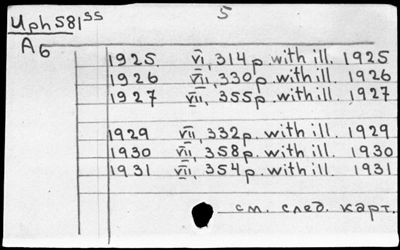 Uph581ss 5
A6
1925. VI, 314p. with ill. 1925
1926 VII, 330p. with ill. 1926
1927 VII, 355p. with ill. 1927
1929 VII, 332p. with ill. 1929
1930 VII, 358p. with ill. 1930
1931 VII, 354p. with ill. 1931
см. след. карт.